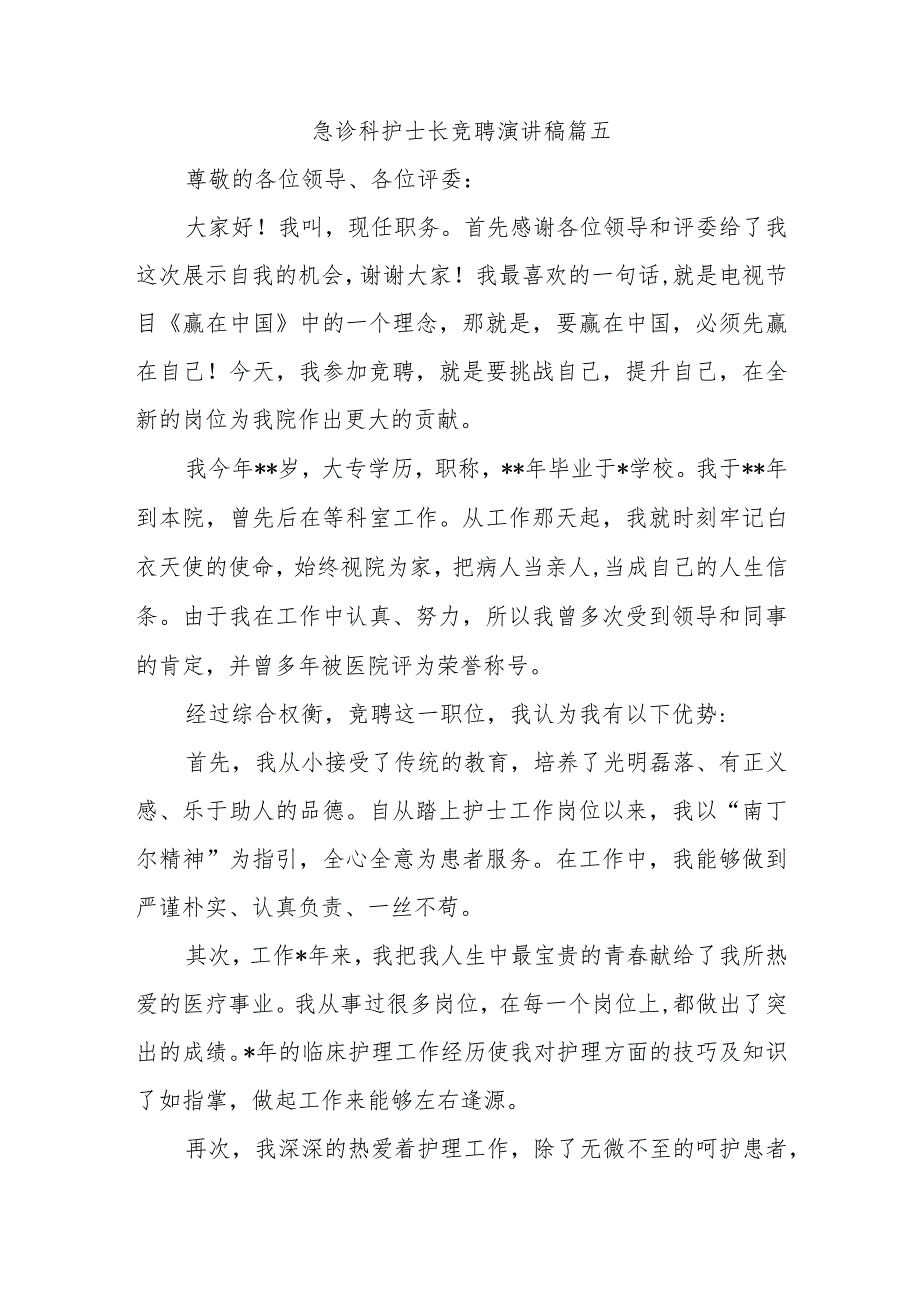 急诊科护士长竞聘演讲稿篇五
尊敬的各位领导、各位评委：
大家好！我叫，现任职务。首先感谢各位领导和评委给了我
这次展示自我的机会，谢谢大家！我最喜欢的一句话,就是电视节
目《赢在中国》中的一个理念，那就是，要赢在中国，必须先赢
在自己！今天，我参加竞聘，就是要挑战自己，提升自己，在全
新的岗位为我院作出更大的贡献。
我今年**岁，大专学历，职称，**年毕业于*学校。我于**年
到本院，曾先后在等科室工作。从工作那天起，我就时刻牢记白
衣天使的使命，始终视院为家，把病人当亲人,当成自己的人生信
条。由于我在工作中认真、努力，所以我曾多次受到领导和同事
的肯定，并曾多年被医院评为荣誉称号。
经过综合权衡，竞聘这一职位，我认为我有以下优势:
首先，我从小接受了传统的教育，培养了光明磊落、有正义
感、乐于助人的品德。自从踏上护士工作岗位以来，我以“南丁
尔精神”为指引，全心全意为患者服务。在工作中，我能够做到
严谨朴实、认真负责、一丝不苟。
其次，工作*年来，我把我人生中最宝贵的青春献给了我所热
爱的医疗事业。我从事过很多岗位，在每一个岗位上,都做出了突
出的成绩。*年的临床护理工作经历使我对护理方面的技巧及知识
了如指掌，做起工作来能够左右逢源。
再次，我深深的热爱着护理工作，除了无微不至的呵护患者，